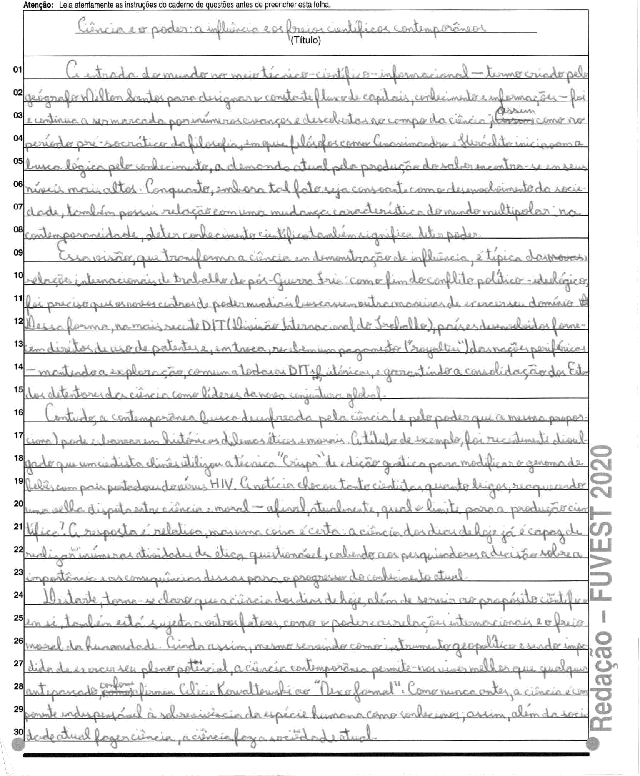 Atenção: Leia atentamente as instruções do caderno de questões antes de preencher esta folha.
Ciência e o poder: a influência e os freios científicos contemporâneos
(Título)
01 A entrada do mundo no meio técnico-científico-informacional – termo criado pelo
02 geógrafo Milton Santos para designar o constante fluxo de capitais, conhecimento e informações – foi
03 e continua a ser marcada por inúmeros avanços e descobertas no campo da ciência; assim como no
04 período pré-socrático da filosofia, em que filósofos como Anaximandro e Heráclito iniciaram a
05 busca lógica pelo conhecimento, a demanda atual pela produção do saber encontra-se em seus
06 níveis mais altos. Conquanto, embora tal fato seja consoante com o desenvolvimento da socie-
07 dade, também possui relação com uma mudança característica do mundo multipolar: na
08 contemporaneidade, deter conhecimento científico também significa deter poder.
09 Essa visão, que transforma a ciência em demonstração de influência, é típica das novas
10 relações internacionais de trabalho do pós-Guerra Fria: com o fim do conflito político-ideológico,
11 foi preciso que os novos centros de poder mundiais buscassem outra maneiras de exercer seu domínio
12 Dessa forma, na mais recente DIT (Divisão Internacional do Trabalho), países desenvolvidos forne-
13 cem direitos de uso de patentes e, em troca, recebem um pagamento ("royalties") das nações periféricas
14 – mantendo a exploração, comum a todas as DIT's históricas, e garantindo a consolidação dos Esta-
15 dos detentores da ciência como líderes da nova conjuntura global.
16 Contudo, a contemporânea busca desenfreada pela ciência (e pelo poder que a mesma propor-
17 ciona) pode esbarrar em históricos dilemas éticos e morais. A título de exemplo, foi recentemente divul-
18 gado que um cientista chinês utilizou a técnica "Crispr" de edição genética para modificar o genoma de
19 bebês com pais portadores do vírus HIV. A notícia chocou tanto cientistas quanto leigos, reaquecendo
20 uma velha disputa entre ciência e moral – afinal, atualmente, qual o limite para a produção cien-
21 tífica? A resposta é relativa, mas uma coisa é certa: a ciência dos dias de hoje já é capaz de
22 realizar inúmeras atividades de ética questionável, cabendo aos pesquisadores a decisão sobre a
23 importância e as consequências dessas para o progresso do conhecimento atual.
24 Destarte, torna-se claro que a ciência dos dias de hoje, além de servir ao propósito científico
25 em si, também está sujeita a outros fatores, como o poder e as relações internacionais e o freio
26 moral da humanidade. Ainda assim, mesmo servindo como instrumento geopolítico e sendo impe-
27 dida de exercer seu pleno potencial, a ciência contemporânea permite-nos viver melhor que qualquer
28 antepassado, conforme firmou Alicia Kowaltowski ao "Nexo Jornal". Como nunca antes, a ciência é com-
29 ponente indispensável à sobrevivência da espécie humana como conhecemos; assim, além da socie-
30 dade atual fazer ciência, a ciência faz a sociedade atual.
Redação – FUVEST 2020